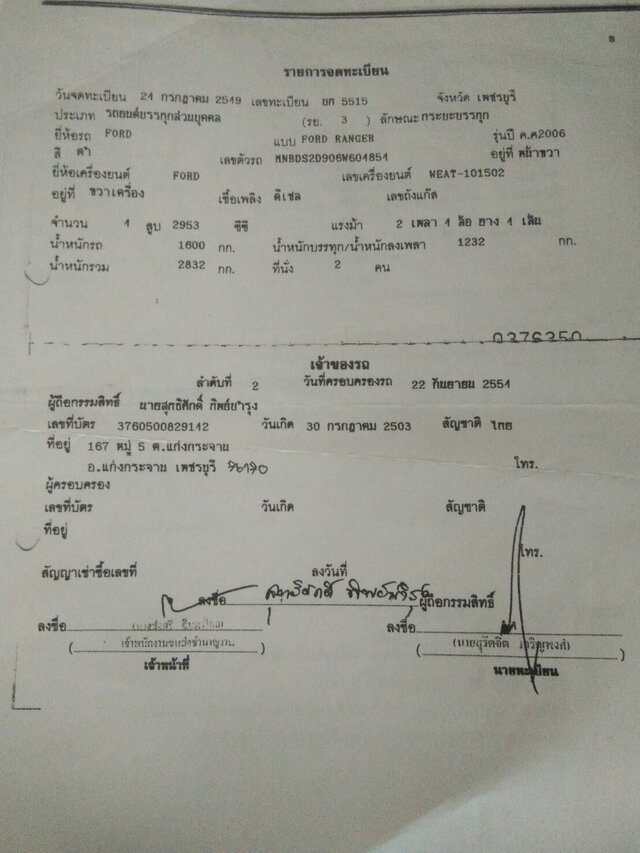 8
รายการจดทะเบียน
วันจดทะเบียน 24 กรกฎาคม 2549 เลขทะเบียน บท 5515 จังหวัด เพชรบุรี
ประเภท รถยนต์บรรทุกส่วนบุคคล (รย. 3 ) ลักษณะ กระบะบรรทุก
ยี่ห้อรถ FORD แบบ FORD RANGER รุ่นปี ค.ศ2006
สี ดำ เลขตัวรถ MNBDS2D906W604854 อยู่ที่ หน้าขวา
ยี่ห้อเครื่องยนต์ FORD เลขเครื่องยนต์ WEAT-101502
อยู่ที่ ขวาเครื่อง เชื้อเพลิง ดีเซล เลขถังแก๊ส
จำนวน 4 สูบ 2953 ซีซี แรงม้า 2 เพลา 4 ล้อ ยาง 4 เส้น
น้ำหนักรถ 1600 กก. น้ำหนักบรรทุก/น้ำหนักลงเพลา 1232 กก.
น้ำหนักรวม 2832 กก. ที่นั่ง 2 คน
0376350
เจ้าของรถ
ลำดับที่ 2 วันที่ครอบครองรถ 22 กันยายน 2554
ผู้ถือกรรมสิทธิ์ นายสุทธิศักดิ์ ทิพย์บำรุง
เลขที่บัตร 3760500829142 วันเกิด 30 กรกฎาคม 2503 สัญชาติ ไทย
ที่อยู่ 167 หมู่ 5 ต.แก่งกระจาน
อ.แก่งกระจาน เพชรบุรี 76170 โทร.
ผู้ครอบครอง
เลขที่บัตร วันเกิด สัญชาติ
ที่อยู่
โทร.
สัญญาเช่าซื้อเลขที่ ลงวันที่
ลงชื่อ ผู้ถือกรรมสิทธิ์
ลงชื่อ ลงชื่อ
( เจ้าพนักงานขนส่งชำนาญงาน ) (นายสุรัตจิต เจริญพงศ์)
เจ้าหน้าที่ นายทะเบียน